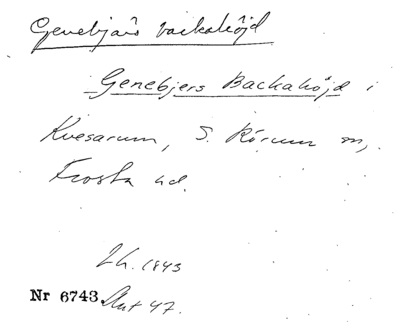 Genebjärs backahöjd
Genebjers Backahöjd i
Kvesarum, S. Rörum sn,
Frosta hd.
Lh. 1843
Nr 6743. Akt 47.